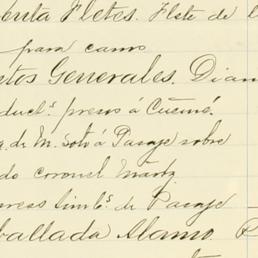 enta Fletes. Flete de l
para carros
tos Generales. Diam
duct.s presos á Cucuné.
de M. Soto á Pasaje sobre
do coronel Martz
reses limb.s de Pasaje
ballada Alamo. P